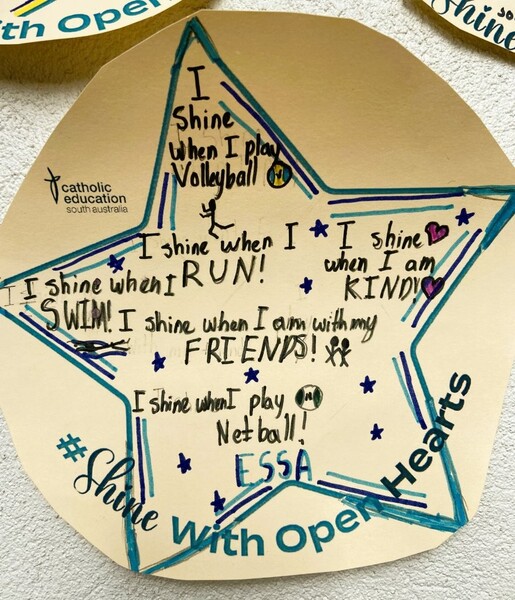 th Open
Shine
I
Shine
when I play
Volleyball
catholic
education
south australia
I shine when I
RUN!
I shine
when I am
KIND!
I shine when I
SWIM!
I shine when I am with my
FRIENDS!
I shine when I play
Netball!
ESSA
#Shine
With Open Hearts